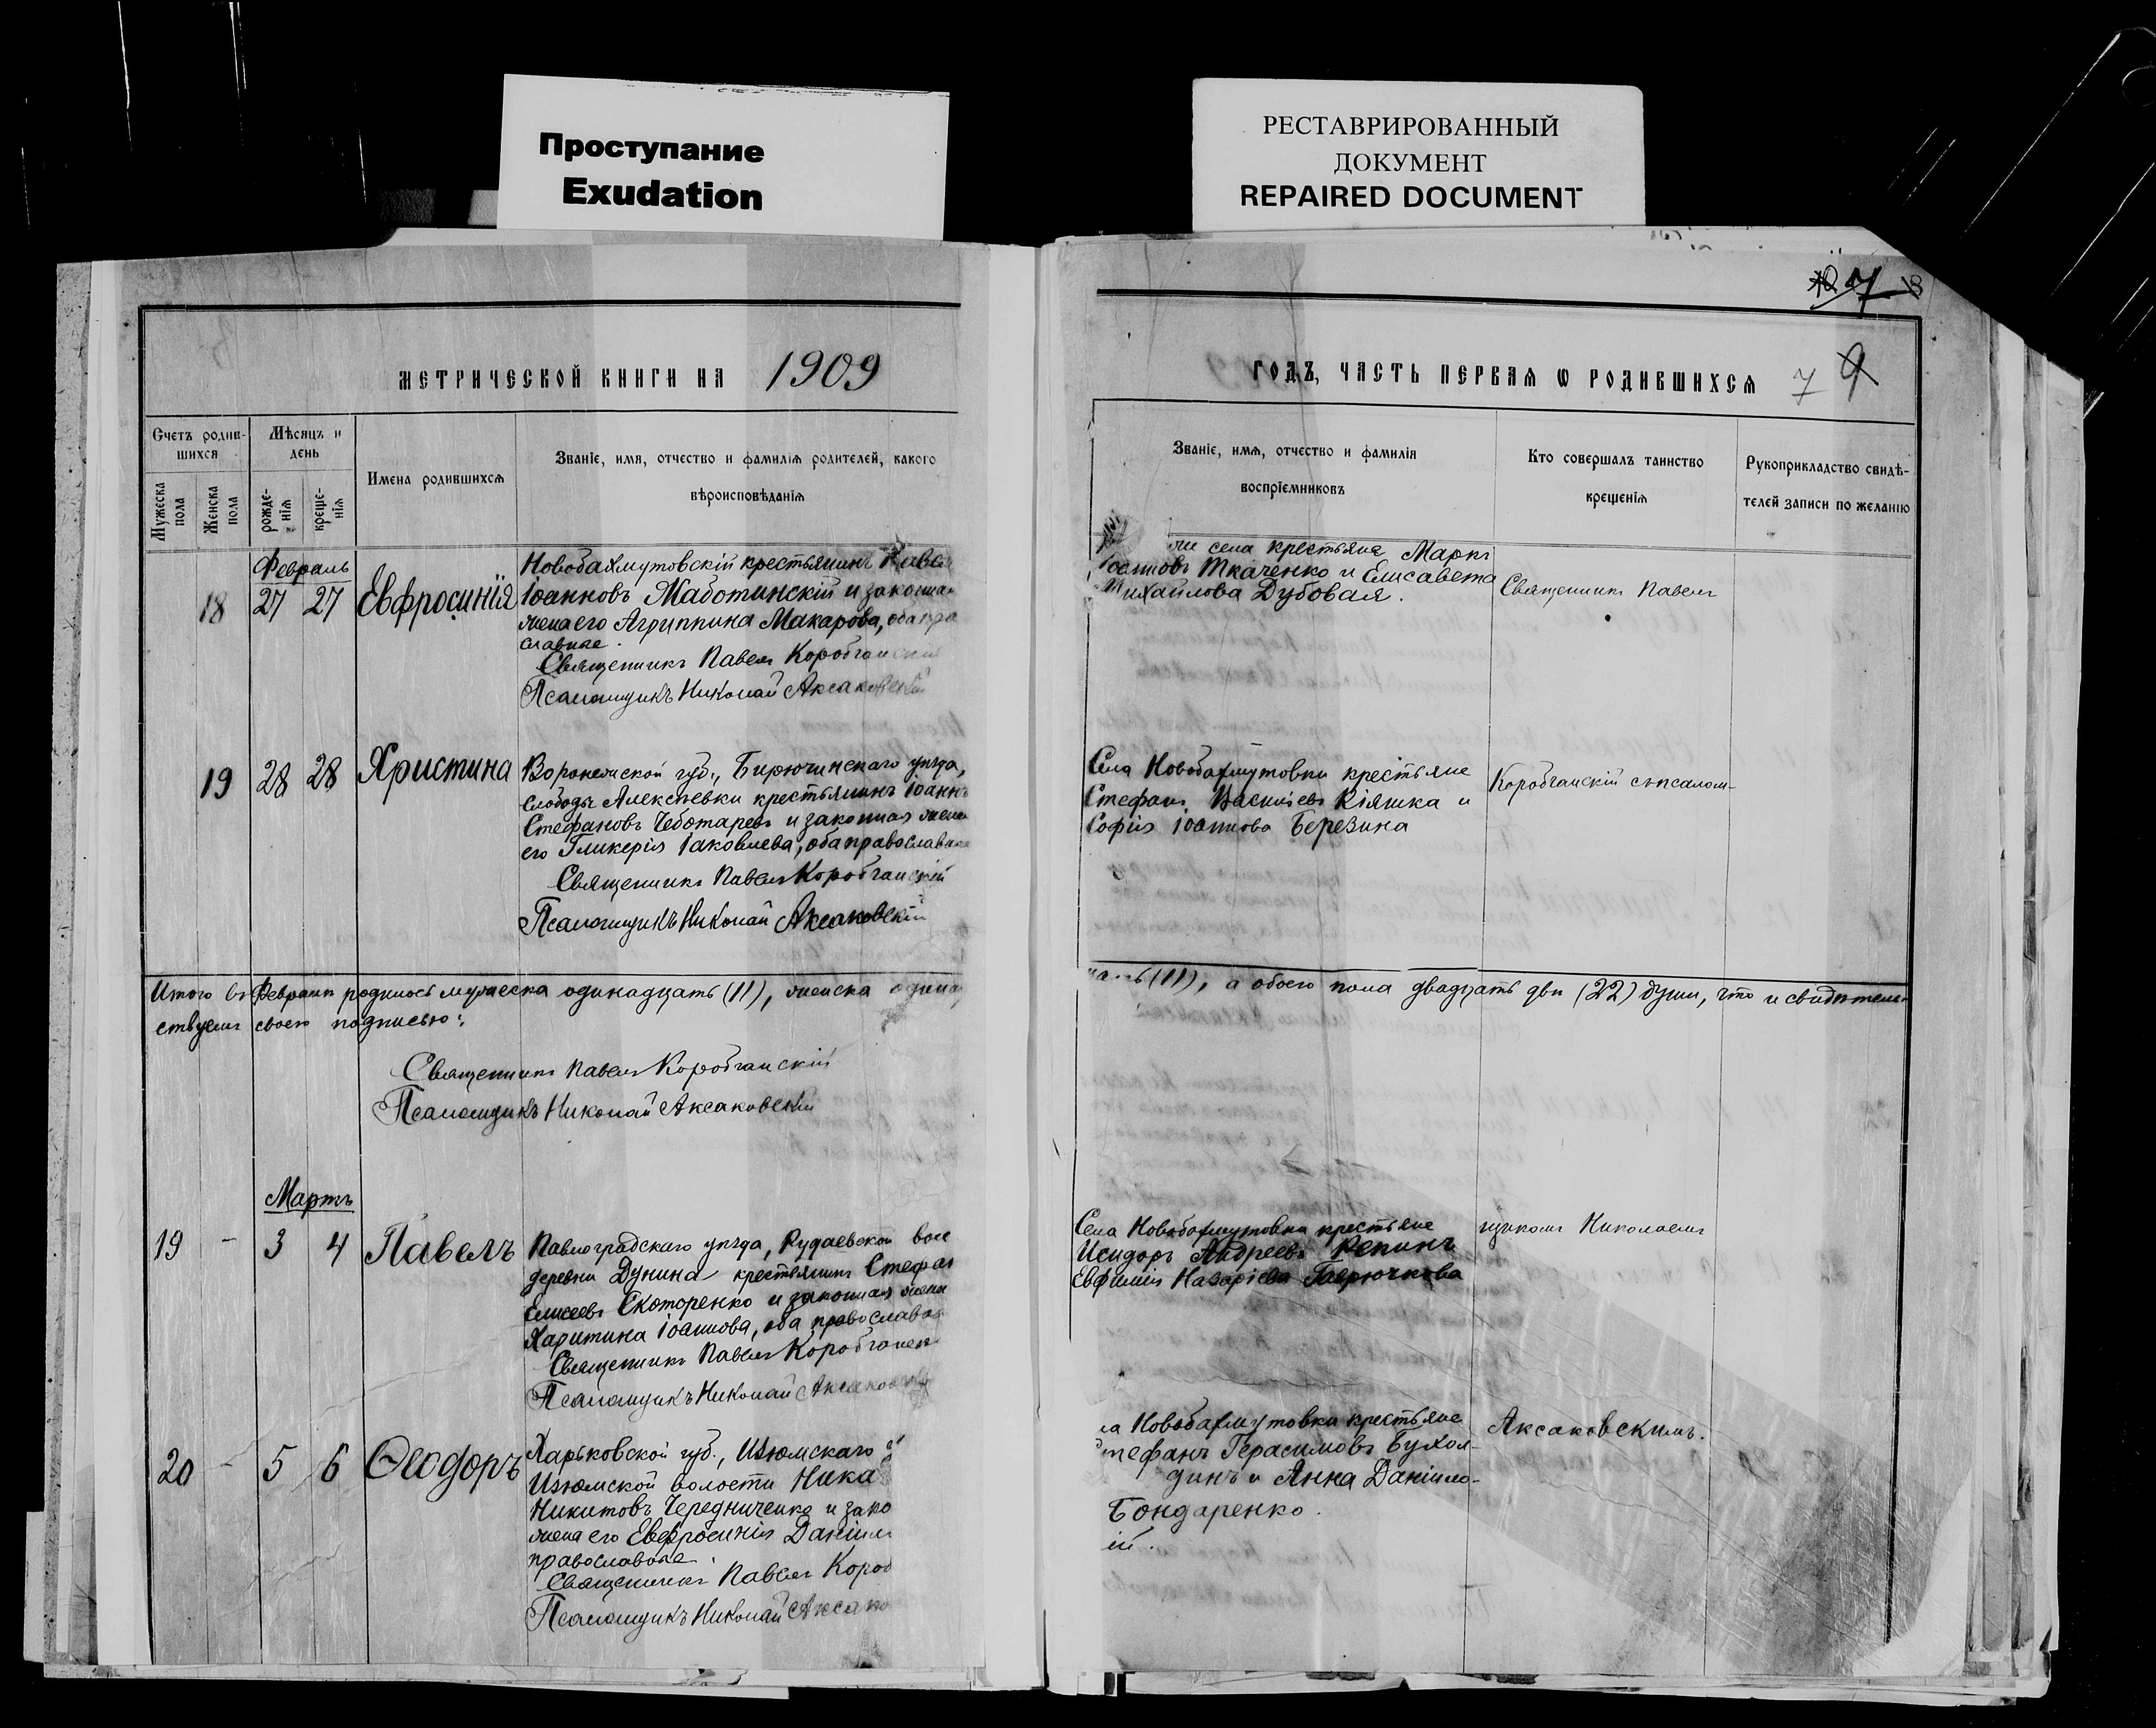 Проступание
Exudation
РЕСТАВРИРОВАННЫЙ
ДОКУМЕНТ
REPAIRED DOCUMENT
7
МЕТРИЧЕСКОЙ КНИГИ НА 1909
Счетъ родив-
шихся
Мѣсяцъ и
день
Мужеска
пола
Женска
пола
рожде-
нія
креще-
нія
Имена родившихся
Званіе, имя, отчество и фамилія родителей, какого
вѣроисповѣданія
Февраль
18 27 27 Евфросинія
Новобахмутовскій крестьянинъ Паве
Іоанновъ Маботинскій и законная
жена его Агриппина Макарова, оба пра
славные.
Священникъ Павелъ Коробчанскій
Псаломщикъ Николай Аксаковскій
19 28 28 Христина
Воронежской губ., Бирючинскаго уѣзда,
слободы Алексѣевки крестьянинъ Іоаннъ
Стефановъ Чеботаревъ и законная жена
его Гликерія Іаковлева, оба православные
Священникъ Павелъ Коробчанскій
Псаломщикъ Николай Аксаковскій
Итого въ Февралѣ родилось мужеска одинадцать (11), женска одина
ствуемъ своею подписью:
Священникъ Павелъ Коробчанскій
Псаломщикъ Николай Аксаковскій
Мартъ
19 - 3 4 Павелъ
Павлоградскаго уѣзда, Рудаевской вол
деревни Дунина крестьянинъ Стефан
Елисеевъ Скоторенко и законная жена
Харитина Іоаннова, оба православные
Священникъ Павелъ Коробчанск
Псаломщикъ Николай Аксаков
20 - 5 6 Ѳеодоръ
Харьковской губ., Изюмскаго у
Изюмской волости Ника
Никитовъ Чередниченко и зако
жена его Евфросинія Даніил
православные.
Священникъ Павелъ Короб
Псаломщикъ Николай Аксако
ГОДЪ, ЧАСТЬ ПЕРВАЯ Ѡ РОДИВШИХСЯ 7 9
Званіе, имя, отчество и фамилія
воспріемниковъ
Кто совершалъ таинство
крещенія
Рукоприкладство свидѣ-
телей записи по желанію
села крестьяне Маркъ
Іоанновъ Ткаченко и Елисавета
Михайлова Дубовая.
Священникъ Павелъ
Села Новобахмутовки крестьяне
Стефанъ Васильевъ Кіяшка и
Софія Іоаннова Березина
Коробчанскій съ псалом-
надть (11), а обоего пола двадцать два (22) души, что и свидѣтель-
Села Новобахмутовки крестьяне
Исидоръ Андреевъ Репинъ
Евфимія Назаріева Гаврючкова
щикомъ Николаемъ
ла Новобахмутовки крестьяне
Стефанъ Герасимовъ Бухол-
динъ и Анна Даніило-
Бондаренко.
ій.
Аксаковскимъ.